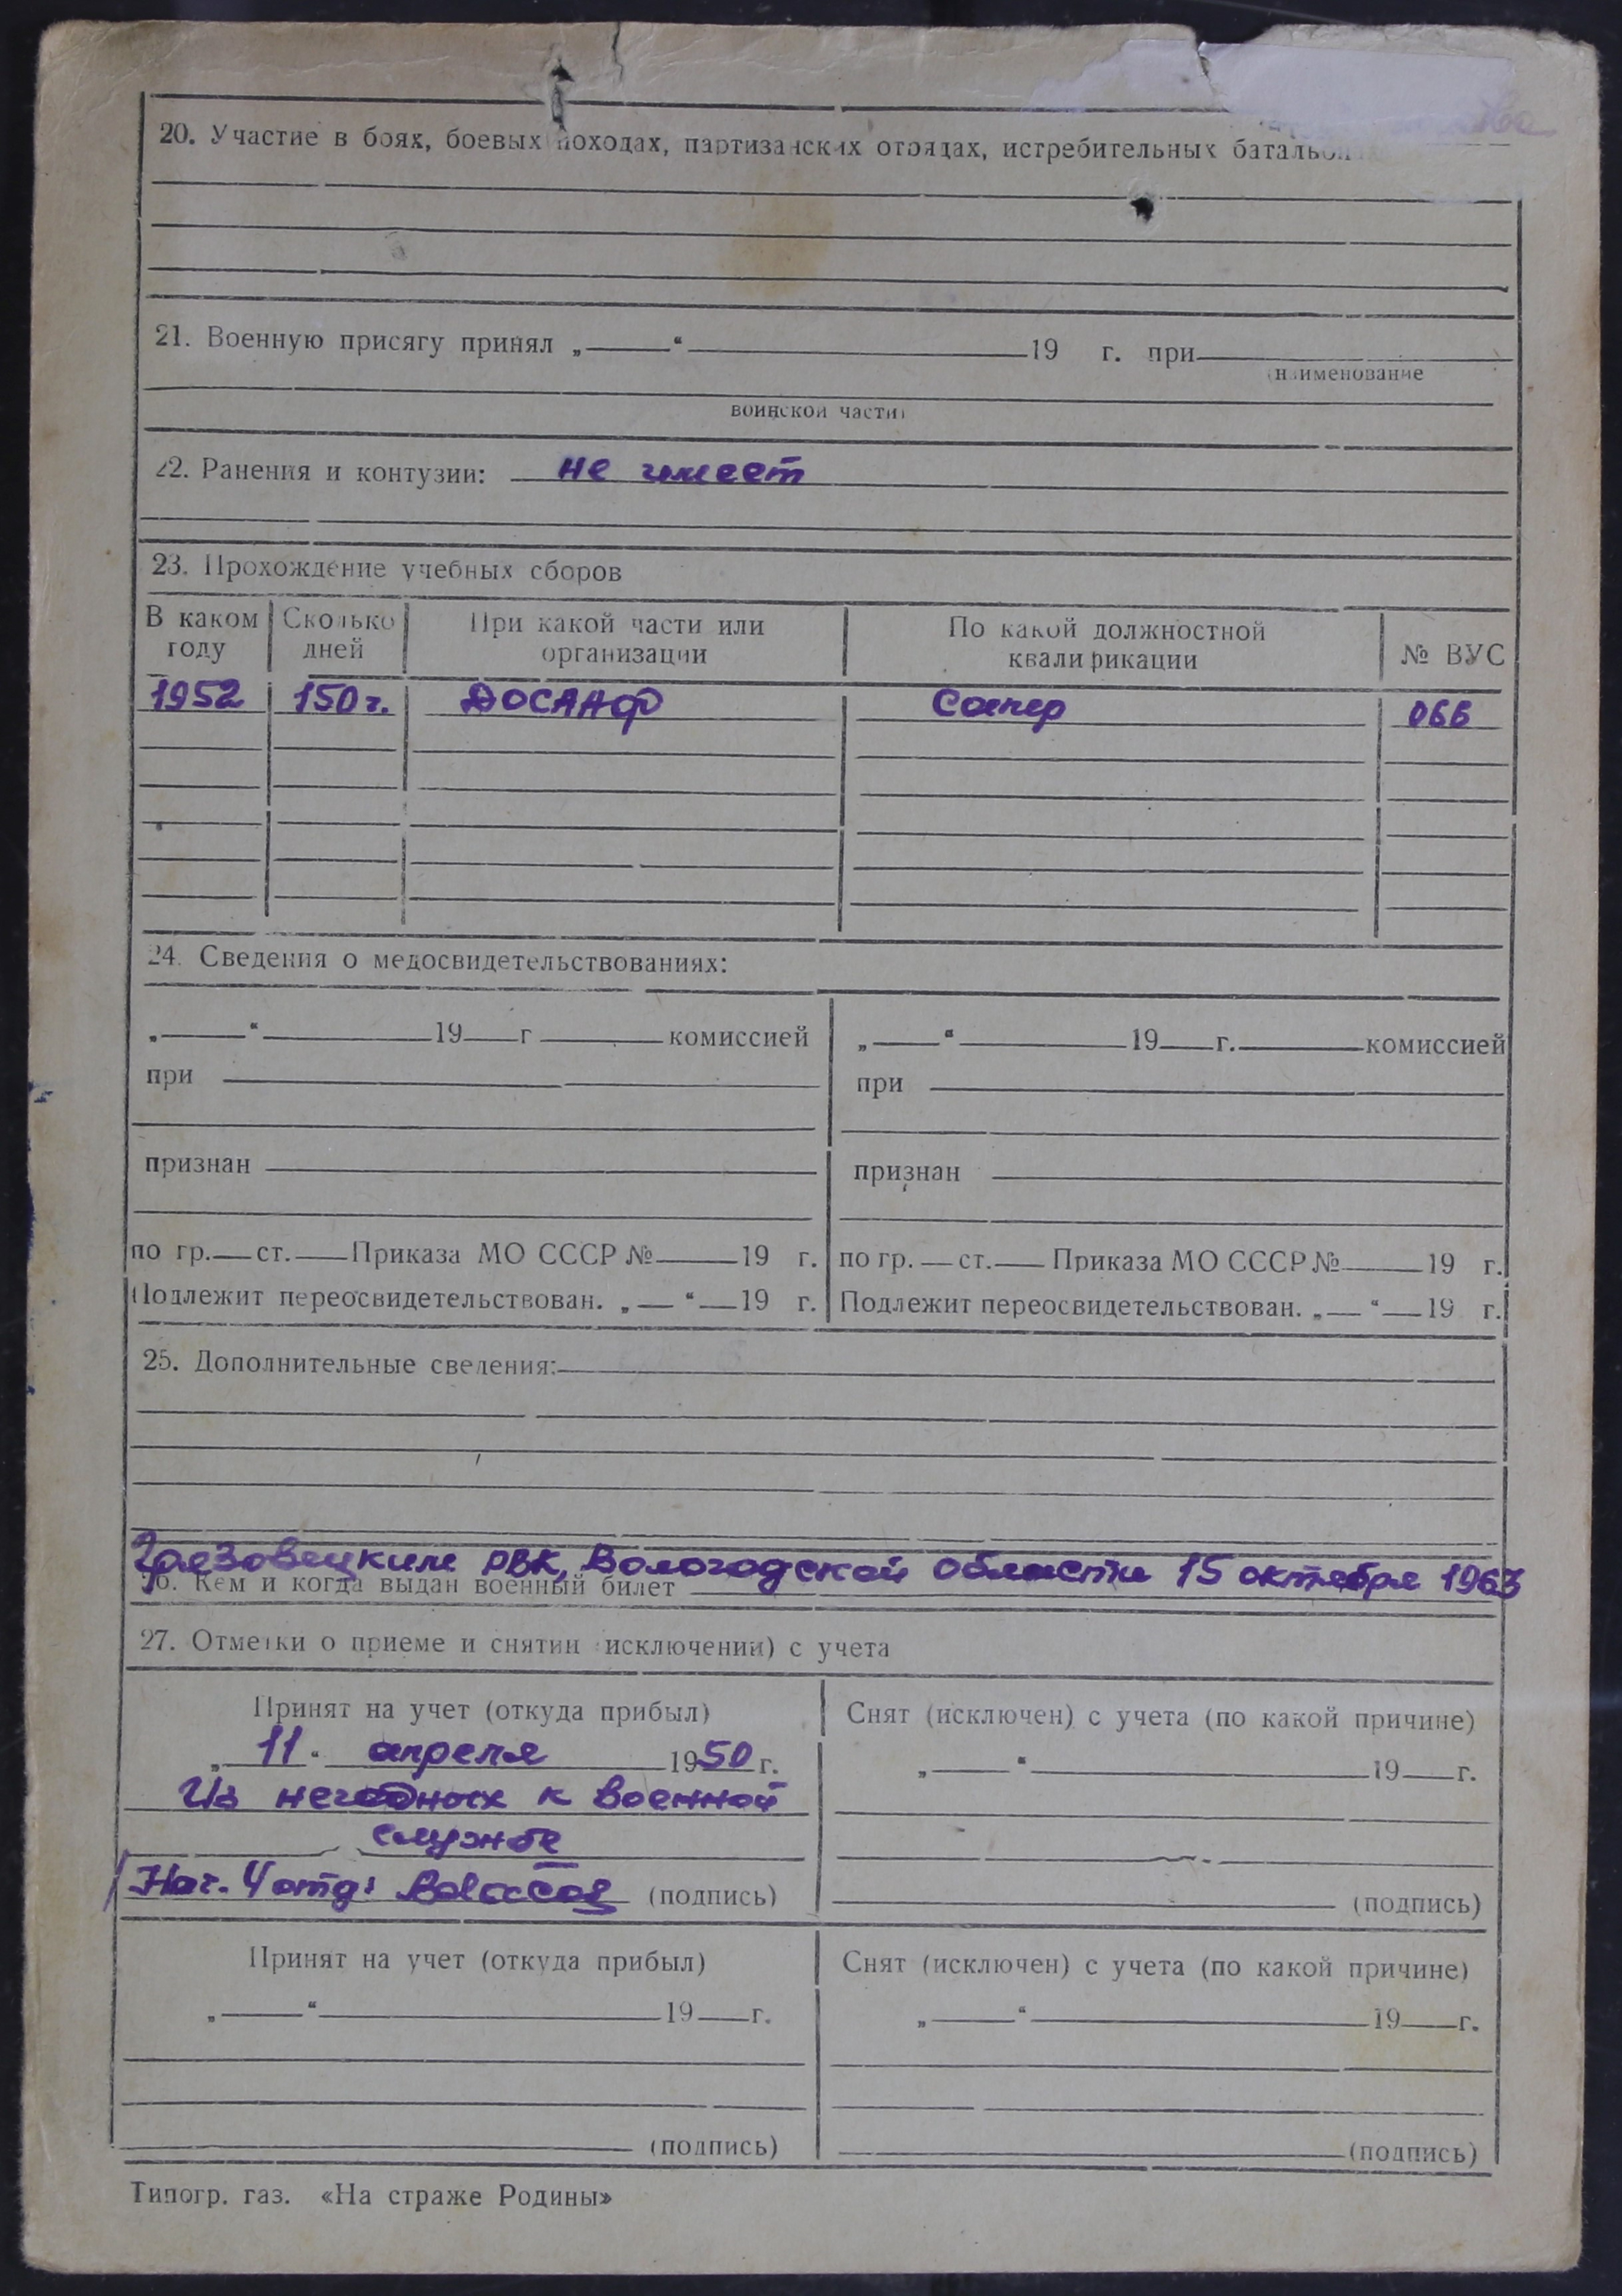 20. Участие в боях, боевых походах, партизанских отрядах, истребительных
21. Военную присягу принял „ “ 19 г. при
наименование
воинской части)
22. Ранения и контузии: не имеет
23. Прохождение учебных сборов
В каком году Сколько дней При какой части или организации По какой должностной квалификации № ВУС
1952 150 г. ДОСААФ Сапер 066
24. Сведения о медосвидетельствованиях:
„ “ 19 г комиссией „ “ 19 г. комиссией
при при
признан признан
по гр. ст. Приказа МО СССР № 19 г. по гр. ст. Приказа МО СССР № 19 г.
Подлежит переосвидетельствован. „ “ 19 г. Подлежит переосвидетельствован. „ “ 19 г.
25. Дополнительные сведения:
Грязовецким РВК, Вологодской области 15 октября 1963
26. Кем и когда выдан военный билет
27. Отметки о приеме и снятии (исключении) с учета
Принят на учет (откуда прибыл) Снят (исключен) с учета (по какой причине)
„ 11 “ апреля 1950 г. „ “ 19 г.
Из негодных к военной
службе
Нач. 4 отд: (подпись) (подпись)
Принят на учет (откуда прибыл) Снят (исключен) с учета (по какой причине)
„ “ 19 г. „ “ 19 г.
(подпись) (подпись)
Типогр. газ. «На страже Родины»